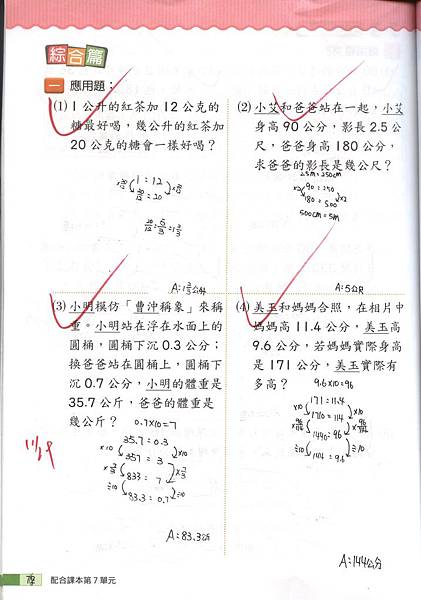 綜合篇
一 應用題：
(1) 1 公升的紅茶加 12 公克的
糖最好喝，幾公升的紅茶加
20 公克的糖會一樣好喝？
1 : 12
= 20
20/12 = 5/3 = 1 2/3
A: 1 2/3 公升
(2) 小艾和爸爸站在一起，小艾
身高 90 公分，影長 2.5 公
尺，爸爸身高 180 公分，
求爸爸的影長是幾公尺？
2.5m = 250cm
×2 90 = 250
180 = 500 ×2
500cm = 5m
A: 5公尺
(3) 小明模仿「曹沖稱象」來稱
重。小明站在浮在水面上的
圓桶，圓桶下沉 0.3 公分；
換爸爸站在圓桶上，圓桶下
沉 0.7 公分，小明的體重是
35.7 公斤，爸爸的體重是
幾公斤？ 0.7×10=7
35.7 = 0.3
×10 357 = 3 ×10
×7/3 833 = 7 ×7/3
÷10 83.3 = 0.7 ÷10
A: 83.3
(4) 美玉和媽媽合照，在相片中
媽媽高 11.4 公分，美玉高
9.6 公分，若媽媽實際身高
是 171 公分，美玉實際有
多高？ 9.6×10=96
171 = 11.4
×10 1710 = 114 ×10
×96/114 1440 = 96 ×96/114
÷10 = 9.6 ÷10
A: 144公分
配合課本第 7 單元